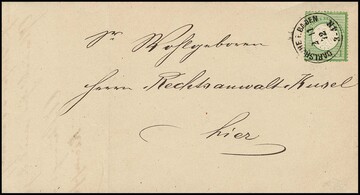 CARLSRUHE I. BADEN
Sr. Wohlgeboren
Herrn Rechtsanwalt Kusel
hier